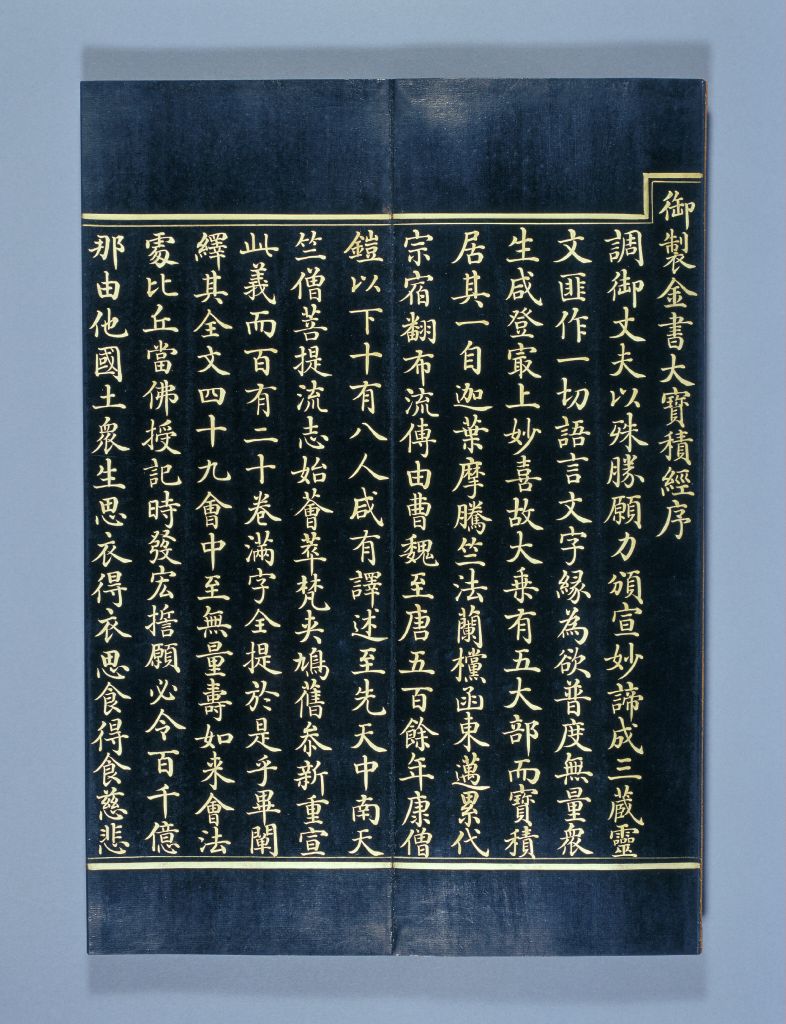 御製金書大寶積經序
調御丈夫以殊勝願力頒宣妙諦成三藏靈
文匪作一切語言文字緣為欲普度無量衆
生咸登㝡上妙喜故大乗有五大部而寶積
居其一自迦葉摩騰竺法蘭欓函東邁累代
宗宿翻布流傳由曹魏至唐五百餘年康僧
鎧以下十有八人咸有譯述至先天中南天
竺僧菩提流志始薈萃梵夾鳩舊叅新重宣
此義而百有二十卷滿字全提於是乎畢闡
繹其全文四十九會中至無量壽如来會法
處比丘當佛授記時發宏誓願必令百千億
那由他國土衆生思衣得衣思食得食慈悲